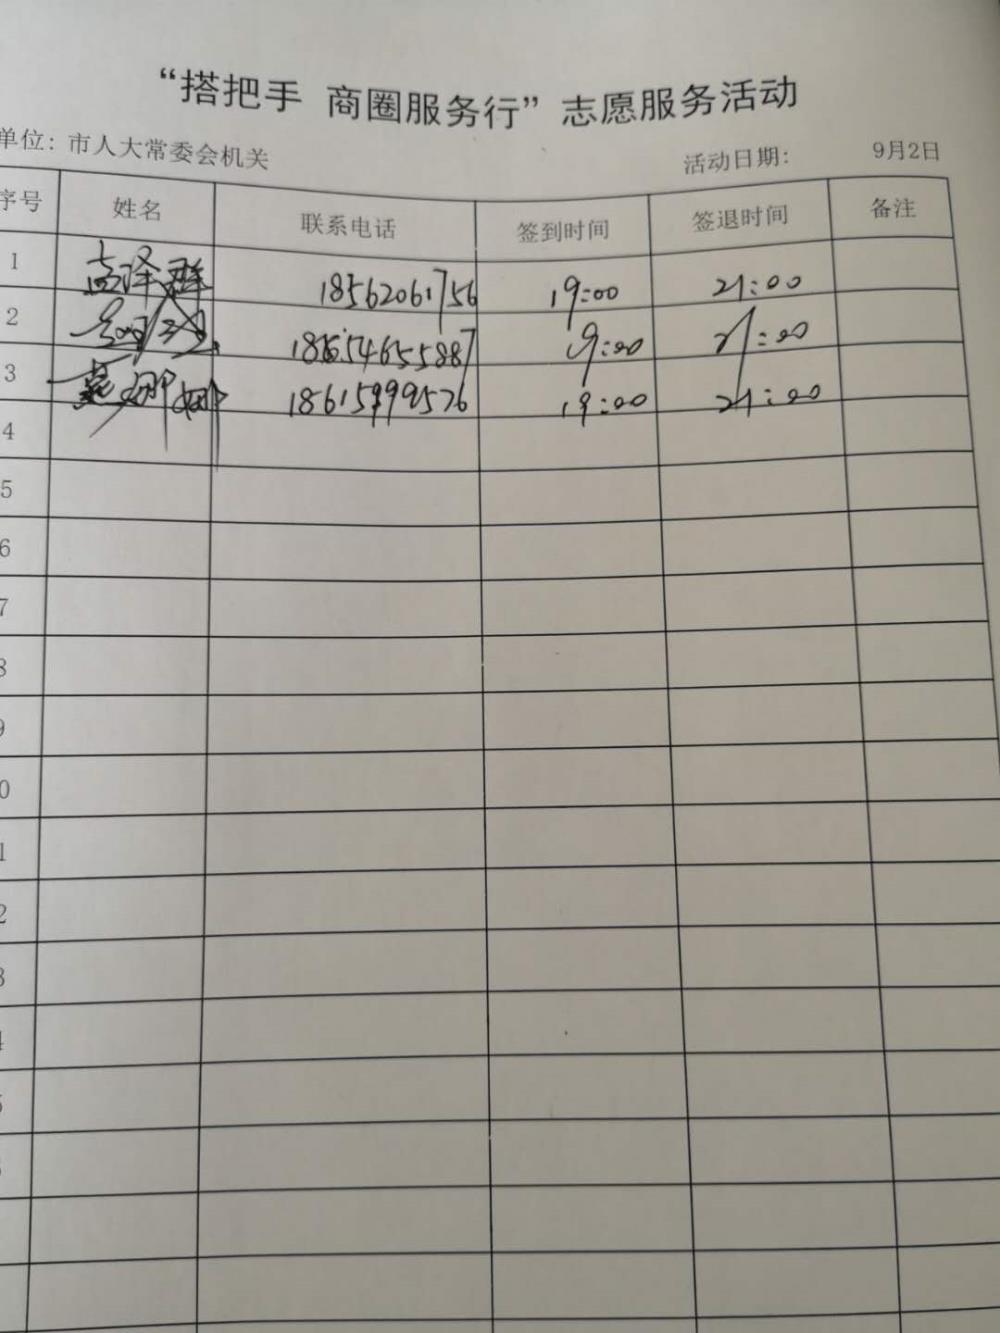 “搭把手 商圈服务行”志愿服务活动
单位：市人大常委会机关 活动日期： 9月2日
序号 姓名 联系电话 签到时间 签退时间 备注
1 孟泽群 18562061756 19:00 21:00
2 19:00 21:00
3 娜娜 18615999576 19:00 21:00
4
5
6
7
8
9
0
1
2
3
4
5